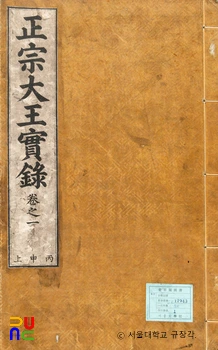 正宗大王實錄
卷之一
丙申上
ⓒ 서울대학교 규장각